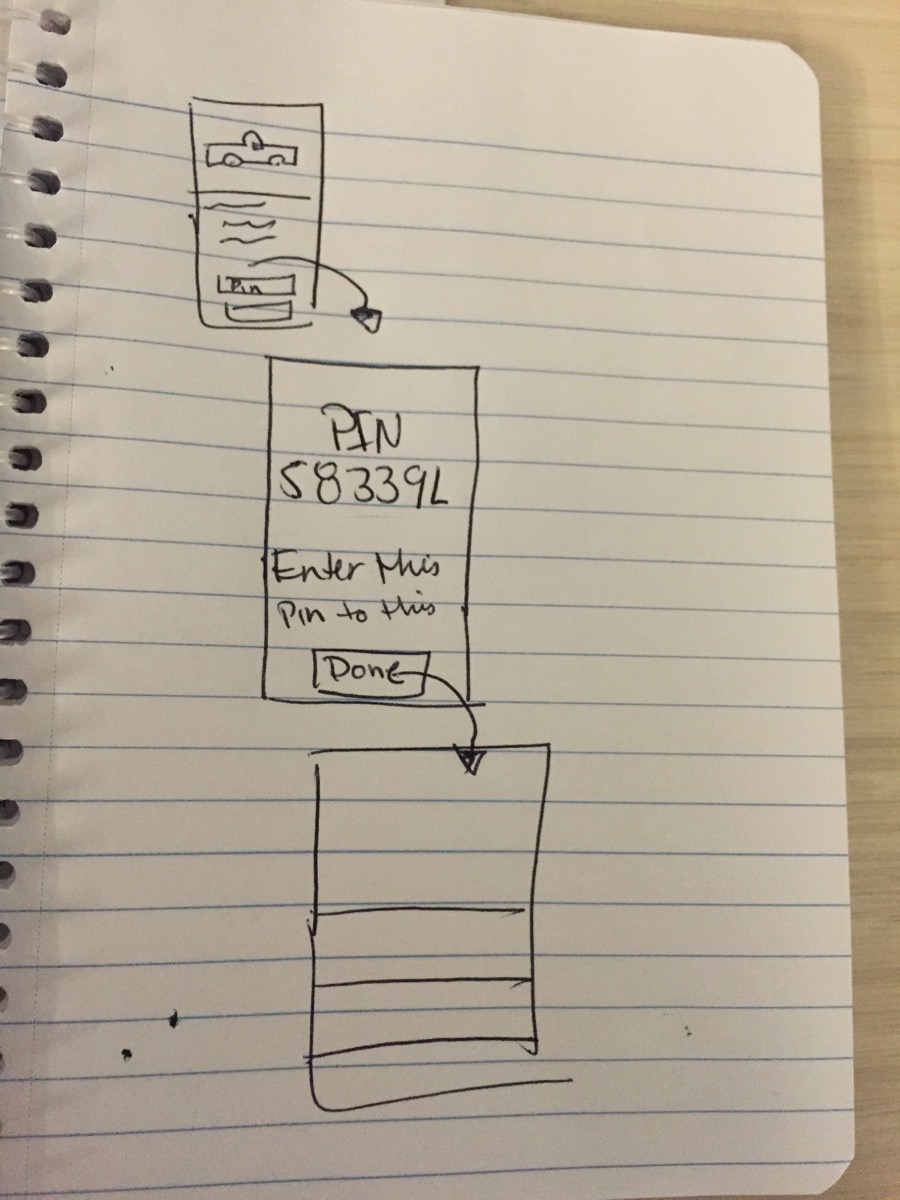 Pin
PIN
58339L
Enter this
Pin to this
Done